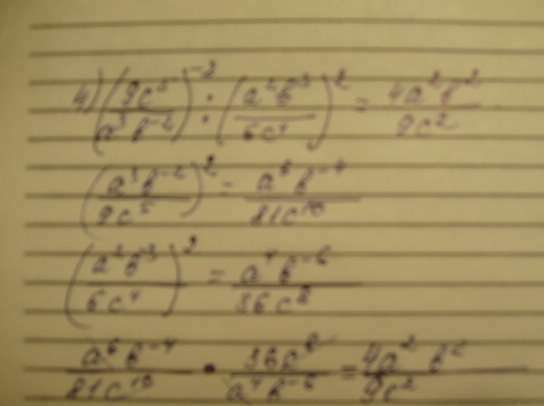 4) (9c⁵/a³b⁻²)⁻² : (a²b⁻³/6c⁴)² = 4a²b²/9c²
(a³b⁻²/9c⁵)² = a⁶b⁻⁴/81c¹⁰
(a²b⁻³/6c⁴)² = a⁴b⁻⁶/36c⁸
a⁶b⁻⁴/81c¹⁰ · 36c⁸/a⁴b⁻⁶ = 4a²b²/9c²